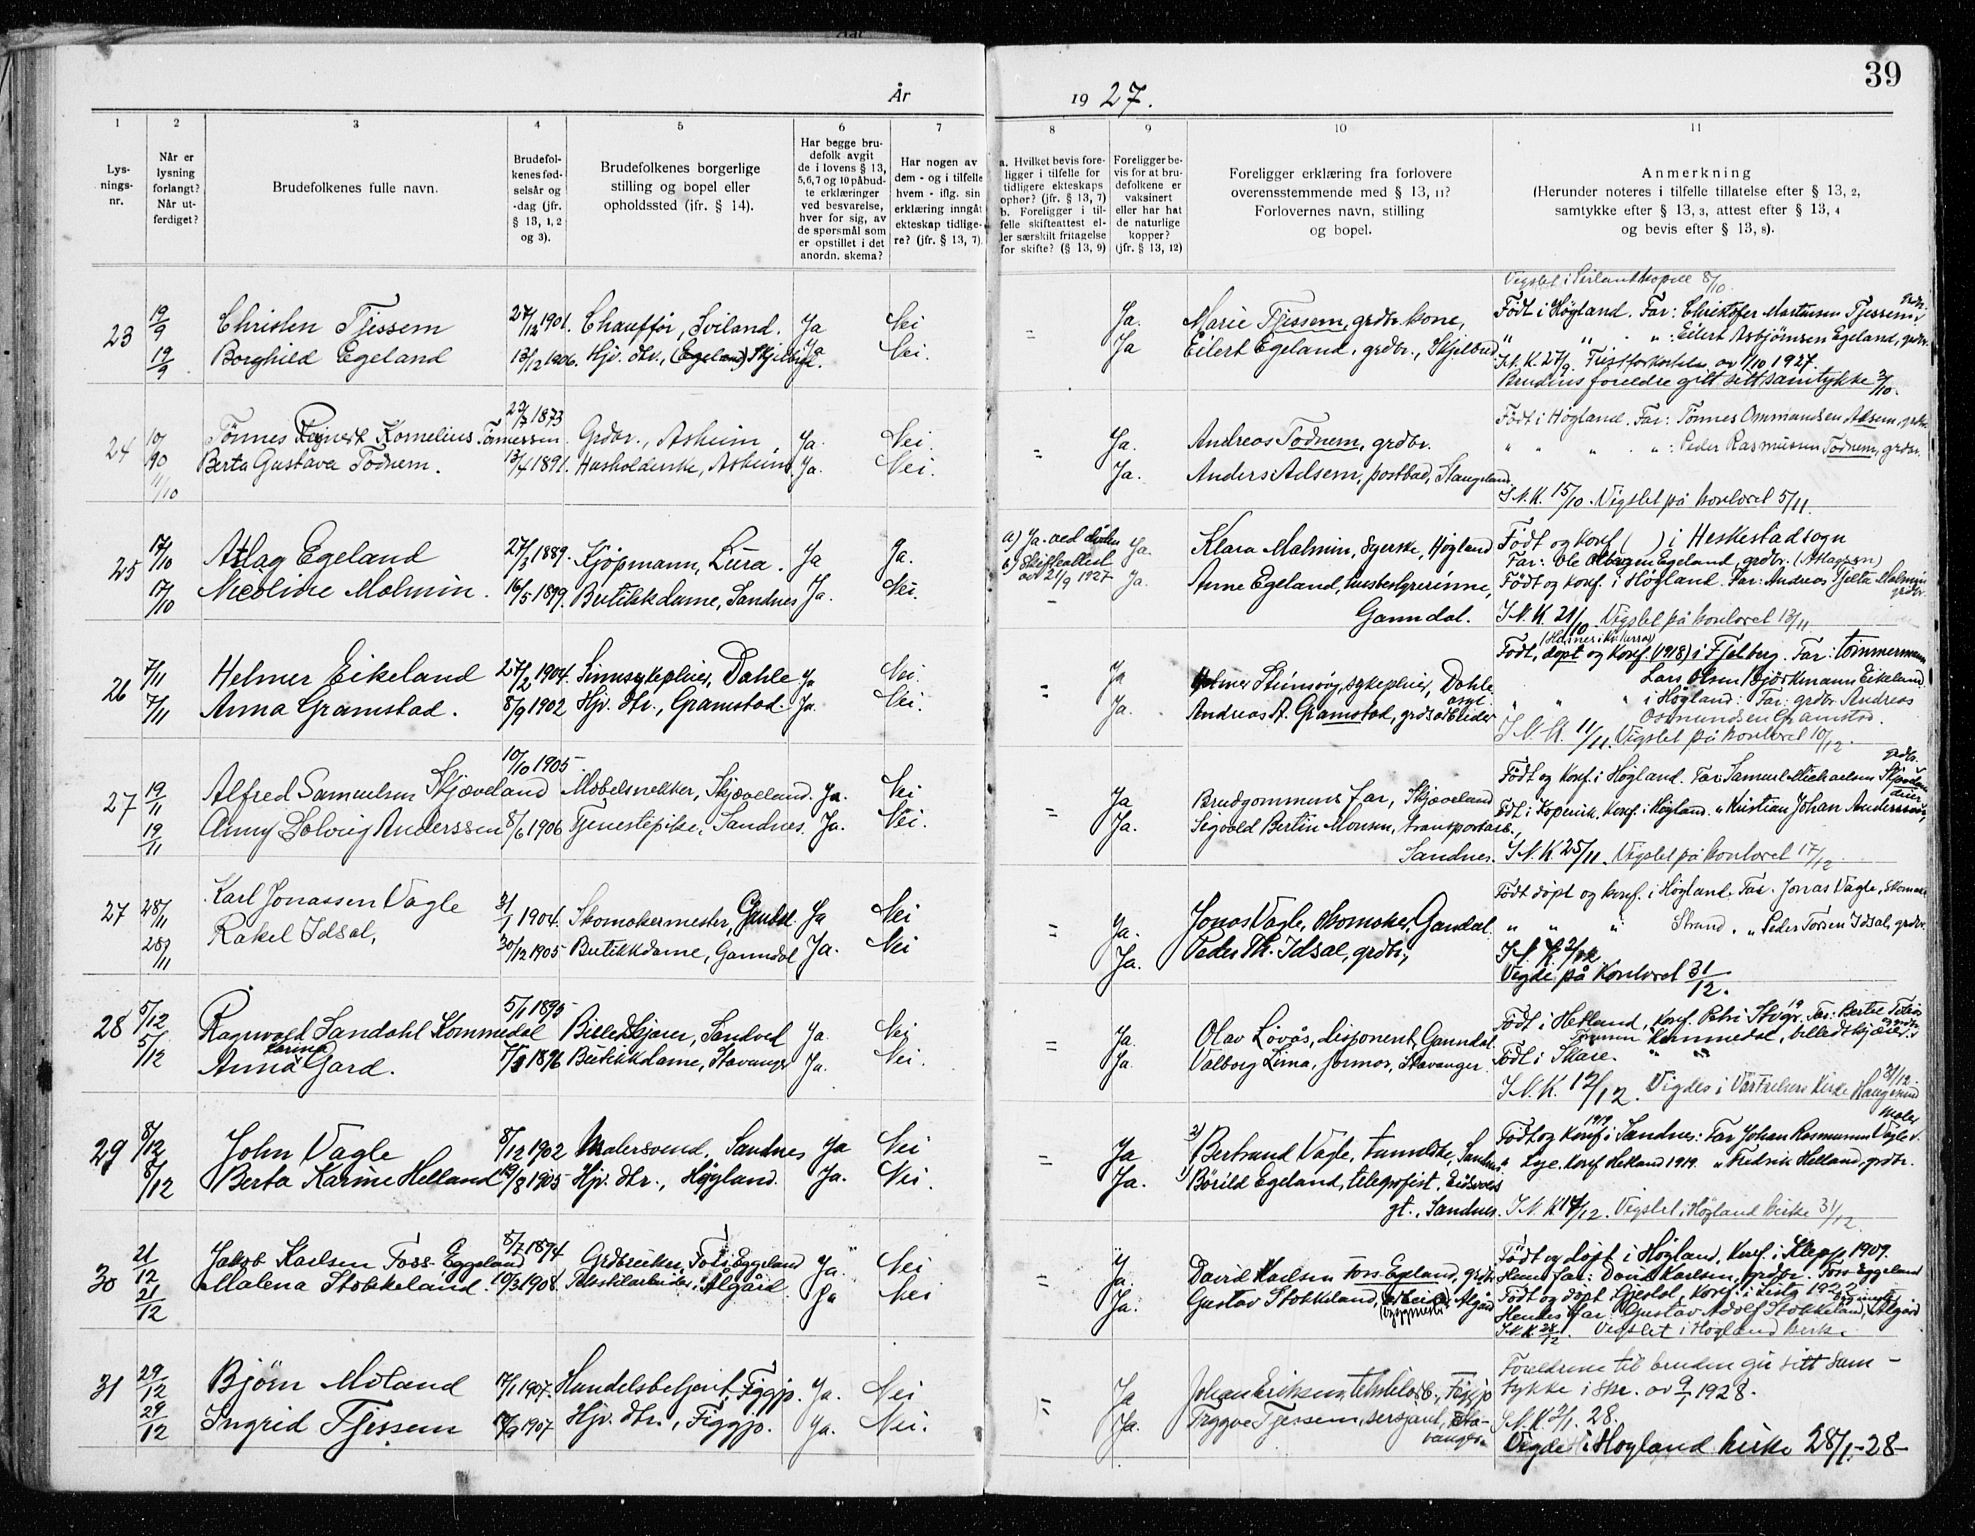 39
År 1927.
1 2 3 4 5 6 7 8 9 10 11
Lys-
nings-
nr.
Når er
lysning
forlangt?
Når ut-
ferdiget?
Brudefolkenes fulle navn.
Brudefol-
kenes fød-
selsår og
-dag (jfr.
§ 13, 1, 2
og 3).
Brudefolkenes borgerlige
stilling og bopel eller
opholdssted (jfr. § 14).
Har begge bru-
defolk avgit
de i lovens § 13,
5, 6, 7 og 10 påbud-
te erklæringer
ved besvarelse,
hver for sig, av
de spørsmål som
er opstillet i det
anordn. skema?
Har nogen av
dem - og i tilfelle
hvem - iflg. sin
erklæring inngåt
ekteskap tidlige-
re? (jfr. § 13, 7)
a. Hvilket bevis fore-
ligger i tilfelle for
tidligere ekteskaps
ophør? (jfr. § 13, 7)
b. Foreligger i til-
felle skifteattest el-
ler særskilt fritagelse
for skifte? (§ 13, 9)
Foreligger be-
vis for at bru-
defolkene er
vaksinert
eller har hat
de naturlige
kopper?
(jfr. § 13, 12)
Foreligger erklæring fra forlovere
overensstemmende med § 13, 11?
Forlovernes navn, stilling
og bopel.
Anmerkning
(Herunder noteres i tilfelle tillatelse efter § 13, 2,
samtykke efter § 13, 3, attest efter § 13, 4
og bevis efter § 13, 8).
Vigslet i 8/10.
23 19/9 Christen Tjessem 27/12 1901. Chauffør, Sviland. Ja Nei = Ja. Marie Tjessem, grdbr. kone, Født i Høgland. Far: Christofer Martinsen Tjessem, grdbr.
19/9 Borghild Egeland 13/12 1906. Hjv. dtr., (Egeland) Skjelbred. Ja Nei. Ja Eilert Egeland, grdbr., Skjelbred " " " : Eilert Asbjørnsen Egeland, grdbr.
I. N. K. 27/9. 1/10 1927.
Brudens foreldre gitt sitt samtykke 3/10.
24 10/10 Tønnes Reinert Kornelius Tønnessen 27/7 1873 Grdbr., Asheim Ja. Nei. = Ja. Andreas Todnem, grdbr. Født i Høgland. Far: Tønnes Ommundsen Adsem, grdbr.
11/10 Berta Gustava Todnem. 13/4 1891. Husholderske, Asheim Ja. Nei. Ja. Anders Adsem, postbud, Stangeland " " " " : Peder Rasmussen Todnem, grdbr.
I. N. K. 15/10. Vigslet på kontoret 5/11.
25 17/10 Atlag Egeland 27/3 1889. Kjøpmann, Lura. Ja Ja. a) Ja. ved døden Ja. Klara Malmin, syerske, Høgland Født og konf. ( ) i Heskestad sogn
b) Skifteattest av 21/9 1927 Far: Ole Egeland, grdbr. (Atlagsen)
17/10 Nicoline Malmin. 16/5 1899. Butikkdame, Sandnes Ja. Nei. Ja. Anne Egeland, husbestyrerinne, Født og konf. i Høgland. Far: Andreas Tjelta Malmin grdbr.
Ganndal. I. N. K. 21/10. Vigslet på kontoret 13/11
26 7/11 Helmer Eikeland 27/2 1904. Sinnsykepleier, Dahle Ja Nei. = Ja Stensøy, sykepleier, Dahle asyl. Født, døpt og konf. (1918) i Fjelberg. Far: tømmermann
Lars Olsen Bjørkmann Eikeland.
7/11 Anna Gramstad. 8/9 1902 Hjv. dtr., Gramstad. Ja. Nei. Ja. Andreas A. Gramstad, grdsarbeider " " " i Høgland: Far: grdbr. Andreas
Osmundsen Gramstad.
I. N. K. 11/11. Vigslet på kontoret 10/12.
27 19/11 Alfred Samuelsen Skjæveland 10/10 1905. Møbelsnekker, Skjæveland. Ja. Nei = Ja Brudgommens far, Skjæveland Født og konf. i Høgland. Far: Samuel Mickaelsen
19/11 Anny Solveig Anderssen 8/6 1906 Tjenestepike, Sandnes. Ja. Nei. Ja. Sigvald Bertin Monsen, transportarb., Født i Kopervik. Konf. i Høgland. " Kristian Johan Anderssen,
Sandnes. I. N. K. 25/11. Vigslet på kontoret 17/12.
27 28/11 Karl Jonassen Vagle 31/1 1904. Skomakermester, Gandal Ja Nei = Ja. Jonas Vagle, skomaker, Gandal. Født døpt og konf. i Høgland. Far. Jonas Vagle, skomaker
28/11 Rakel Idsal, 30/12 1905 Butikkdame, Ganndal Ja. Nei Ja. Peder Th. Idsal, grdbr., " " " Strand. " Peder Torsen Idsal, grdbr.
I. N. K. 2/12
Vigde på kontoret 31/12.
28 5/12 Ragnvald Sandahl Kommedal 5/1 1895 Billedskjærer, Sandved Ja. Nei = Ja. Olav Lövås, disponent, Ganndal. Født i Hetland, konf. Petri Stvgr. Far: Bertee
Kommedal, billedskjærer.
5/12 Anna Karina Gard. 1896 Butikkdame, Stavanger Ja. Nei. Ja. Valborg Lima, jormor, Stavanger. Født i Skåre. " "
I. N. K. 12/12. Vigdes i Vår Frelsers kirke Haugesund 31/12.
29 8/12 John Vagle 8/12 1902 Malersvend, Sandnes Ja Nei = Ja 2/ Bertrand Vagle, Sandnes Født og konf. 1919 i Sandnes: Far Johan Rasmussen Vagle, maler
8/12 Berta Karine Helland 19/8 1905 Hjv. dtr., Høgland. Ja. Nei. Ja. 1/ Børild Egeland, telegrafist, Eidsvolds " Lye. konf Hetland 1919. " Fredrik Helland, grdbr.
gt., Sandnes. I. N. K. 17/12. Vigslet i Høgland kirke 31/12.
30 21/12 Jakob Karlsen Foss-Eggeland 8/7 1894 Grdbruker, Foss-Eggeland Ja. Nei = Ja. David Karlsen Foss-Egeland, grdbr. Født og døpt i Høgland, konf. i Klepp 1909.
Hans far: David Karlsen, grdbr. Foss-Eggeland
21/12 Malena Stokkeland. 10/3 1908. Tekstilarbeider, Ålgård. Ja Nei Ja. Gustav Stokkeland, Ålgård Født og døpt i Gjesdal, konf. i Lista 1922
Hendes far: Gustav Adolf Stokkeland, Ålgård
I. N. K. 28/12. Vigslet i Høgland kirke
31 29/12 Bjørn Moland 17/1 1907. Handelsbetjent, Figgjo. Ja. Nei = Ja Johan Eriksen, tekstilarb., Figgjo Foreldrene til bruden gir sitt sam-
tykke i skr. av 9/1 1928.
29/12 Ingrid Tjessem 1907 Hjv. dtr., Figgjo. Ja. Nei. Ja. Tryggve Tjessem, sersjant, Sta-
vanger. I. N. K. 2/1. 28.
Vigde i Høgland kirke 28/1-28-